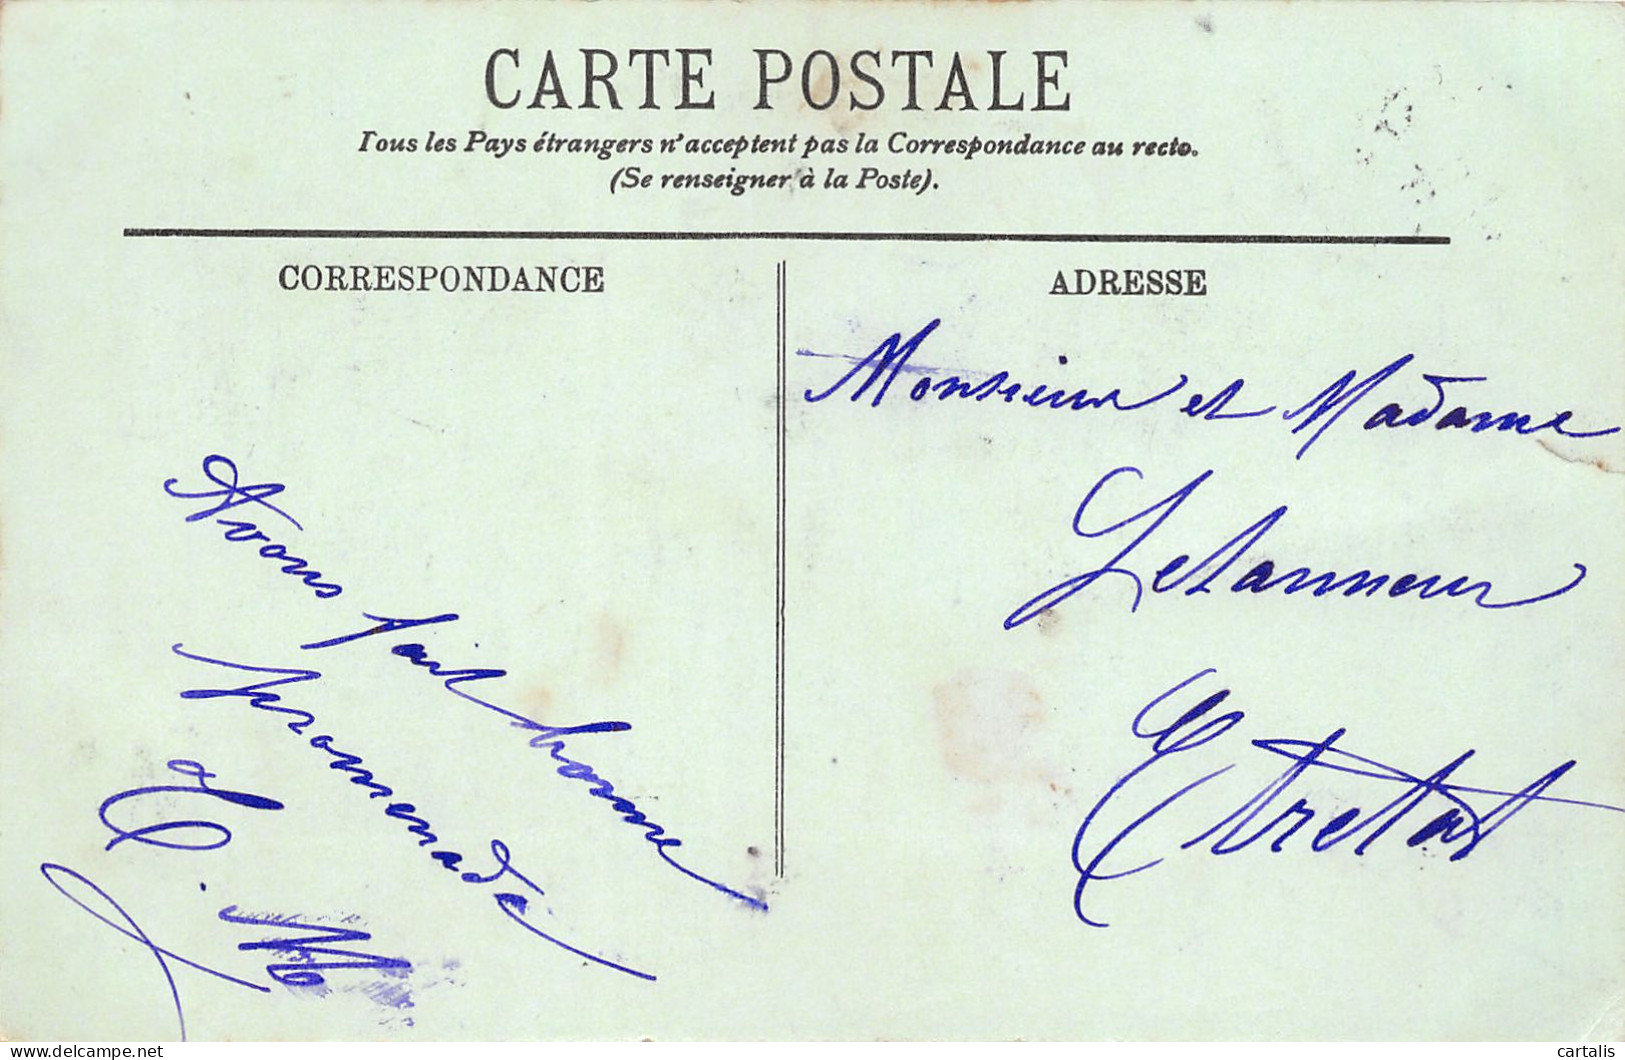 CARTE POSTALE
Tous les Pays étrangers n'acceptent pas la Correspondance au recto.
(Se renseigner à la Poste).
CORRESPONDANCE
Avons fait bonne
promenade
ADRESSE
Monsieur et Madame
Letanneur
Etretat
cartalis